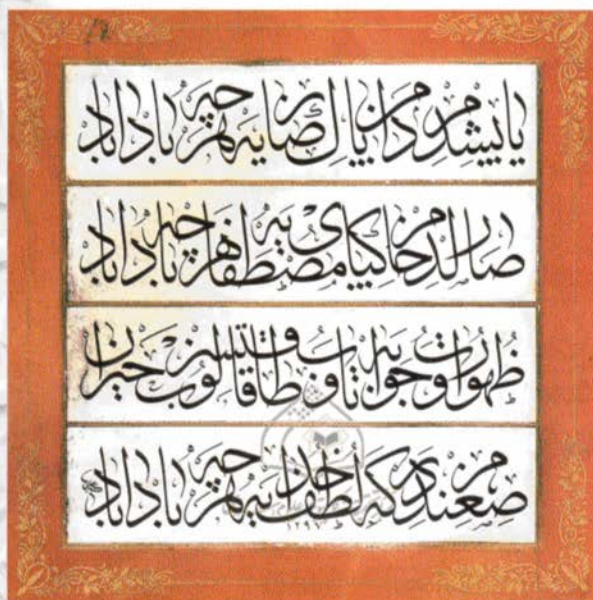 یاپیشدم دامن آل رضایه هرچه باداباد
صارلدم خاکپای مصطفایه هرچه باداباد
ظهورات وجوبه تاب و طاقتسز قالوب حیران
صغندم درگه لطف خدایه هرچه باداباد